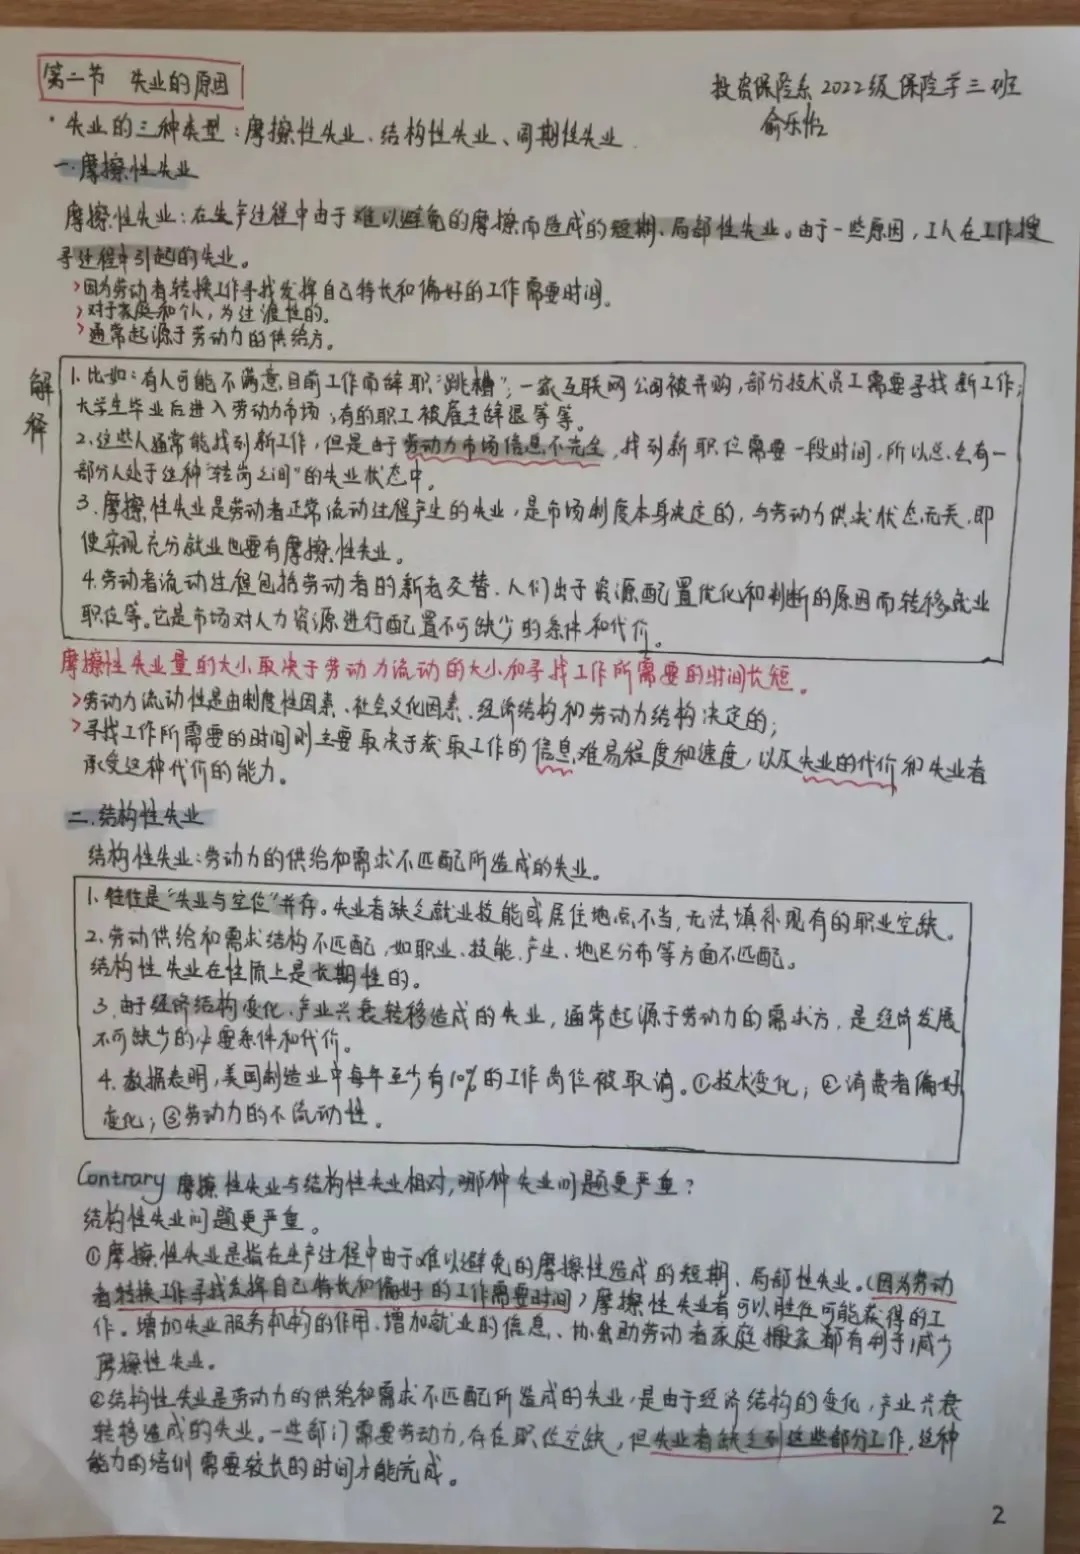 第二节 失业的原因
投资保险系2022级保险学三班
俞乐怡
·失业的三种类型:摩擦性失业、结构性失业、周期性失业
一.摩擦性失业
摩擦性失业:在生产过程中由于难以避免的摩擦而造成的短期、局部性失业。由于一些原因,工人在工作搜
寻过程中引起的失业。
>因为劳动者转换工作寻找发挥自己特长和偏好的工作需要时间。
>对于家庭和个人,为过渡性的。
>通常起源于劳动力的供给方。
解释
1.比如:有人可能不满意目前工作而辞职“跳槽”;一家互联网公司被并购,部分技术员工需要寻找新工作;
大学生毕业后进入劳动力市场;有的职工被雇主辞退等等。
2.这些人通常能找到新工作,但是由于劳动力市场信息不完全,找到新职位需要一段时间,所以总会有一
部分人处于这种“转岗之间”的失业状态中。
3.摩擦性失业是劳动者正常流动过程产生的失业,是市场制度本身决定的,与劳动力供求状态无关,即
使实现充分就业也要有摩擦性失业。
4.劳动者流动过程包括劳动者的新老交替、人们出于资源配置优化和判断的原因而转移就业
职位等。它是市场对人力资源进行配置不可缺少的条件和代价。
摩擦性失业量的大小取决于劳动力流动的大小和寻找工作所需要的时间长短。
>劳动力流动性是由制度性因素、社会文化因素、经济结构和劳动力结构决定的;
>寻找工作所需要的时间则主要取决于获取工作的信息难易程度和速度,以及失业的代价和失业者
承受这种代价的能力。
二.结构性失业
结构性失业:劳动力的供给和需求不匹配所造成的失业。
1.特性是“失业与空位”并存。失业者缺乏就业技能或居住地点不当,无法填补现有的职业空缺。
2.劳动供给和需求结构不匹配,如职业、技能、产生、地区分布等方面不匹配。
结构性失业在性质上是长期性的。
3.由于经济结构变化、产业兴衰转移造成的失业,通常起源于劳动力的需求方,是经济发展
不可缺少的必要条件和代价。
4.数据表明,美国制造业中每年至少有10%的工作岗位被取消。①技术变化;②消费者偏好
变化;③劳动力的不流动性。
Contrary 摩擦性失业与结构性失业相对,哪种失业问题更严重?
结构性失业问题更严重。
①摩擦性失业是指在生产过程中由于难以避免的摩擦性造成的短期、局部性失业。(因为劳动
者转换工作寻找发挥自己特长和偏好的工作需要时间)摩擦性失业者可以胜任可能获得的工
作。增加失业服务机构的作用、增加就业的信息、协会助劳动者家庭搬家都有利于减少
摩擦性失业。
②结构性失业是劳动力的供给和需求不匹配所造成的失业,是由于经济结构的变化,产业兴衰
转移造成的失业。一些部门需要劳动力,存在职位空缺,但失业者缺乏到这些部分工作,这种
能力的培训需要较长的时间才能完成。
2